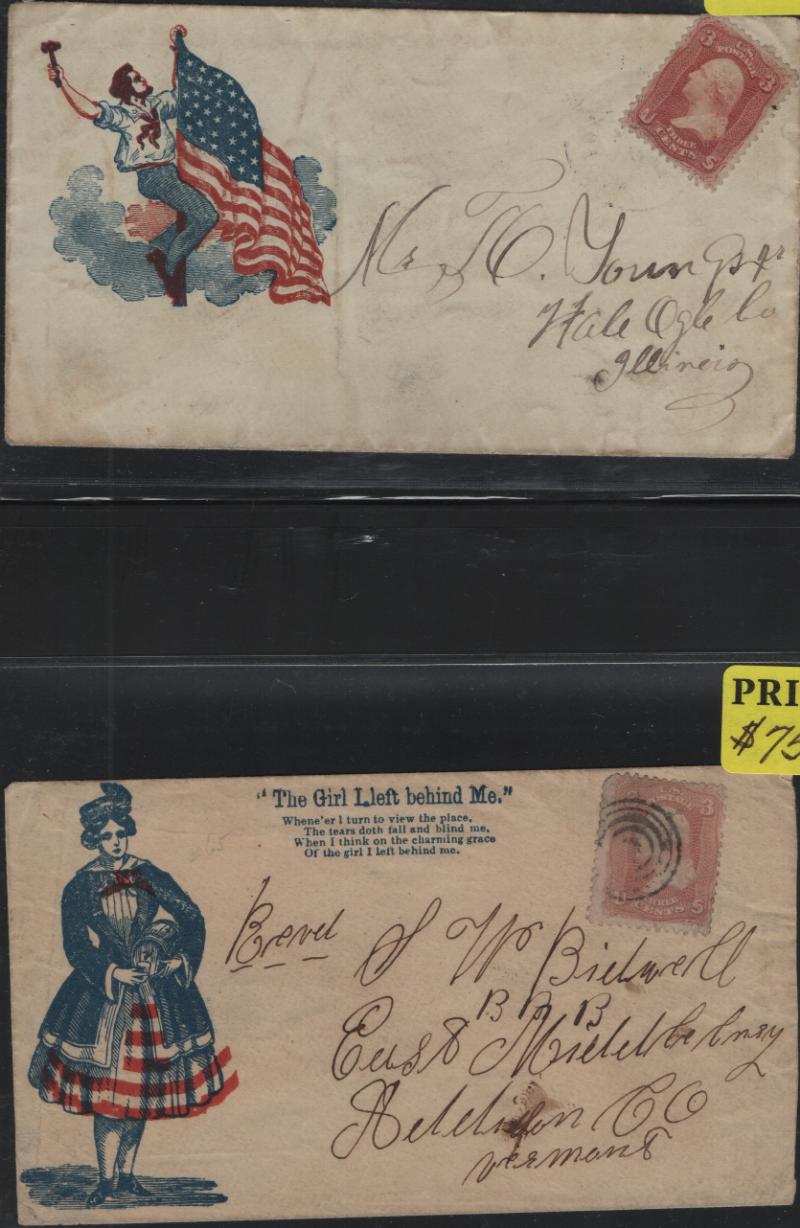 3 U.S. 3
POSTAGE
THREE
U CENTS S
Mr. T. C. Young
Hale Ogle Co
Illinois
PRI
$75
"The Girl I left behind Me."
Whene'er I turn to view the place,
The tears doth fall and blind me,
When I think on the charming grace
Of the girl I left behind me.
U.S. 3
POSTAGE
THREE
CENTS S
Revd S W Bidwell
B B B
East Middlebury
Addison CO
vermont